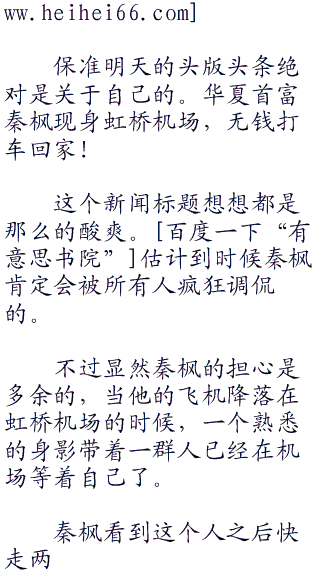 www.heihei66.com]
保准明天的头版头条绝
对是关于自己的。华夏首富
秦枫现身虹桥机场，无钱打
车回家！
这个新闻标题想想都是
那么的酸爽。[百度一下“有
意思书院”]估计到时候秦枫
肯定会被所有人疯狂调侃
的。
不过显然秦枫的担心是
多余的，当他的飞机降落在
虹桥机场的时候，一个熟悉
的身影带着一群人已经在机
场等着自己了。
秦枫看到这个人之后快
走两